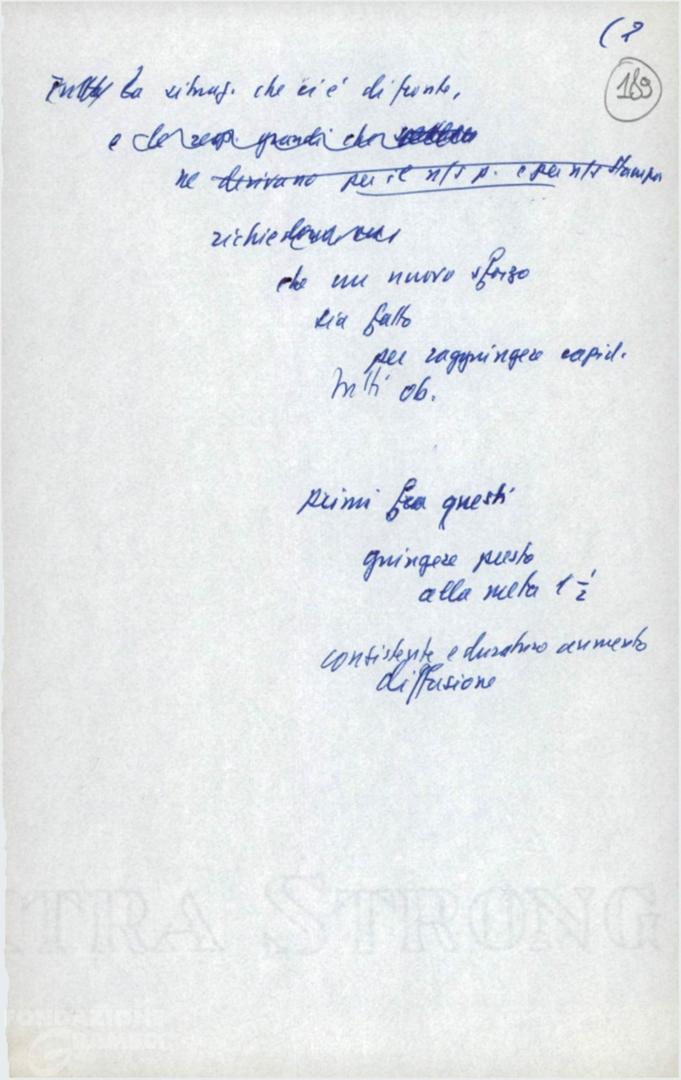 (8
189
Tutta La situaz. che ci è di fronte,
e le resp. grandi che
ne derivano per il n/s p. e per n/s stampa
richiedono
che un nuovo sforzo
sia fatto
per raggiungere rapid.
tutti ob.
primi fra questi
giungere presto
alla meta 1 1/2
consistente e duraturo aumento
diffusione
EXTRA STRONG
FONDAZIONE
GRAMSCI